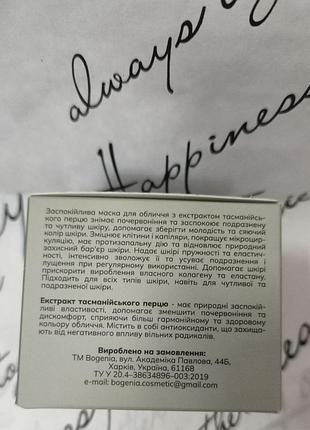 always
Happiness
Заспокійлива маска для обличчя з екстрактом тасманійсь-
кого перцю знімає почервоніння та заспокоює подразнену
та чутливу шкіру, допомагає зберегти молодість та сяючий
колір шкіри. Зміцнює клітини і капіляри, покращує мікроцир-
куляцію, має протизапальну дію та відновлює природний
захисний бар'єр шкіри. Надає шкірі пружності та еластич-
ності, інтенсивно зволожує її та усуває подразнення і
лущення при регулярному використанні. Допомагає шкірі
прискорити вироблення власного колагену та еластану.
Підходить для всіх типів шкіри, навіть для чутливої та
подразненої шкіри.
Екстракт тасманійського перцю - має природні заспокій-
ливі властивості, допомагає зменшити почервоніння та
дискомфорт, сприяючи більш гармонійному та здоровому
кольору обличчя. Містить в собі антиоксиданти, що захища-
ють від негативного впливу вільних радикалів.
Вироблено на замовлення:
ТМ Bogenia, вул. Академіка Павлова, 44Б,
Харків, Україна, 61168
ТУ У 20.4-38634896-003:2019
e-mail: bogenia.cosmetic@gmail.com